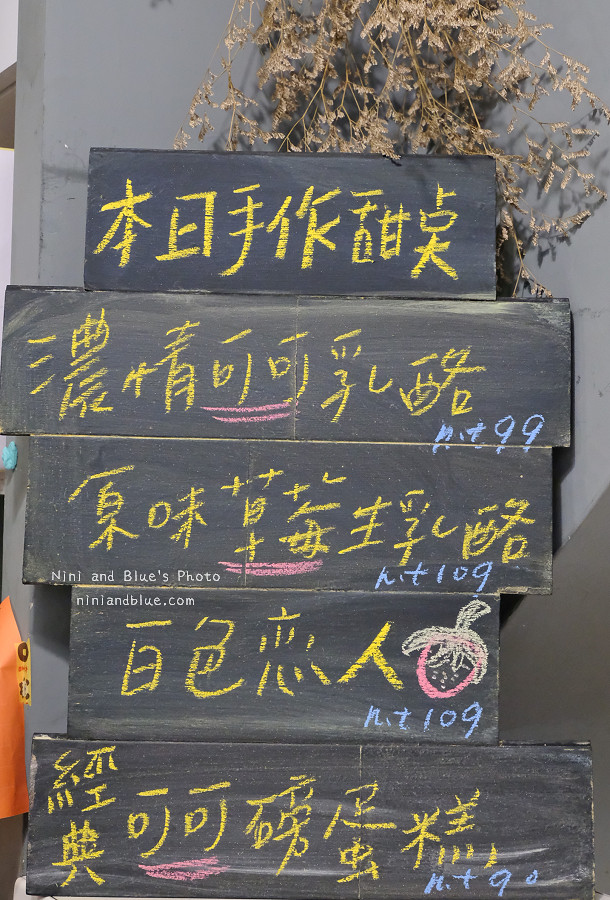 本日手作甜桌
濃情可可乳酪
n.t 99
原味草莓生乳酪
n.t 109
Nini and Blue's Photo
niniandblue.com
百色恋人
n.t 109
經典可可磅蛋糕
n.t 90